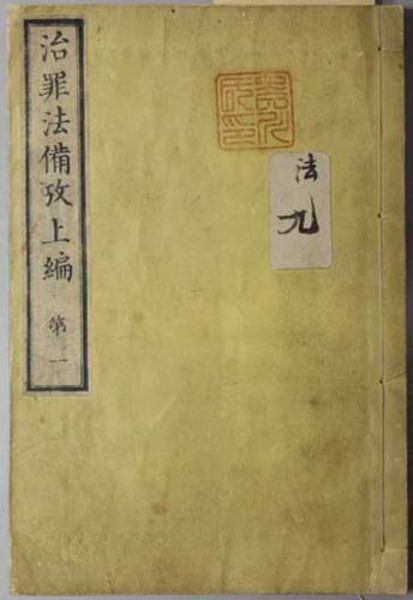 治罪法備攷上編 第一
法
九